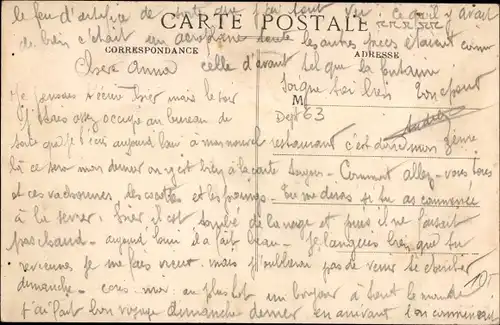 le feu d'artifice de sorte que j'ai tout vu; ce qu'il y avait
de bien c'était un aéroplane toute les autres pièces étaient comme
CARTE POSTALE
CORRESPONDANCE
ADRESSE
Chère Anna
celle d'avant tel que la fontaine
Soigne toi bien Ton
Je pensais t'écrire hier mais le soir
M
Dept 63
j'étais assez occupé au bureau de
André
sorte que je t'écris aujourd'hui à mon nouvel restaurant c'est du mon 3ème
là ce sera mon dernier on y est bien à la carte toujours - Comment allez-vous tous
et ces vachonnes, des cocottes et les Tu me diras si tu as commencée
à la serrer. hier il est tombé de la neige et puis il ne faisait
pas chaud - aujourd'hui il a fait beau - Je languis bien que tu
reviennes je me fais vieux - mais n'oublierai pas de venir te chercher
dimanche - au plus tôt un bonjour à tout le monde
10f
j'ai fait bon voyage dimanche dernier en arrivant l'on commençait